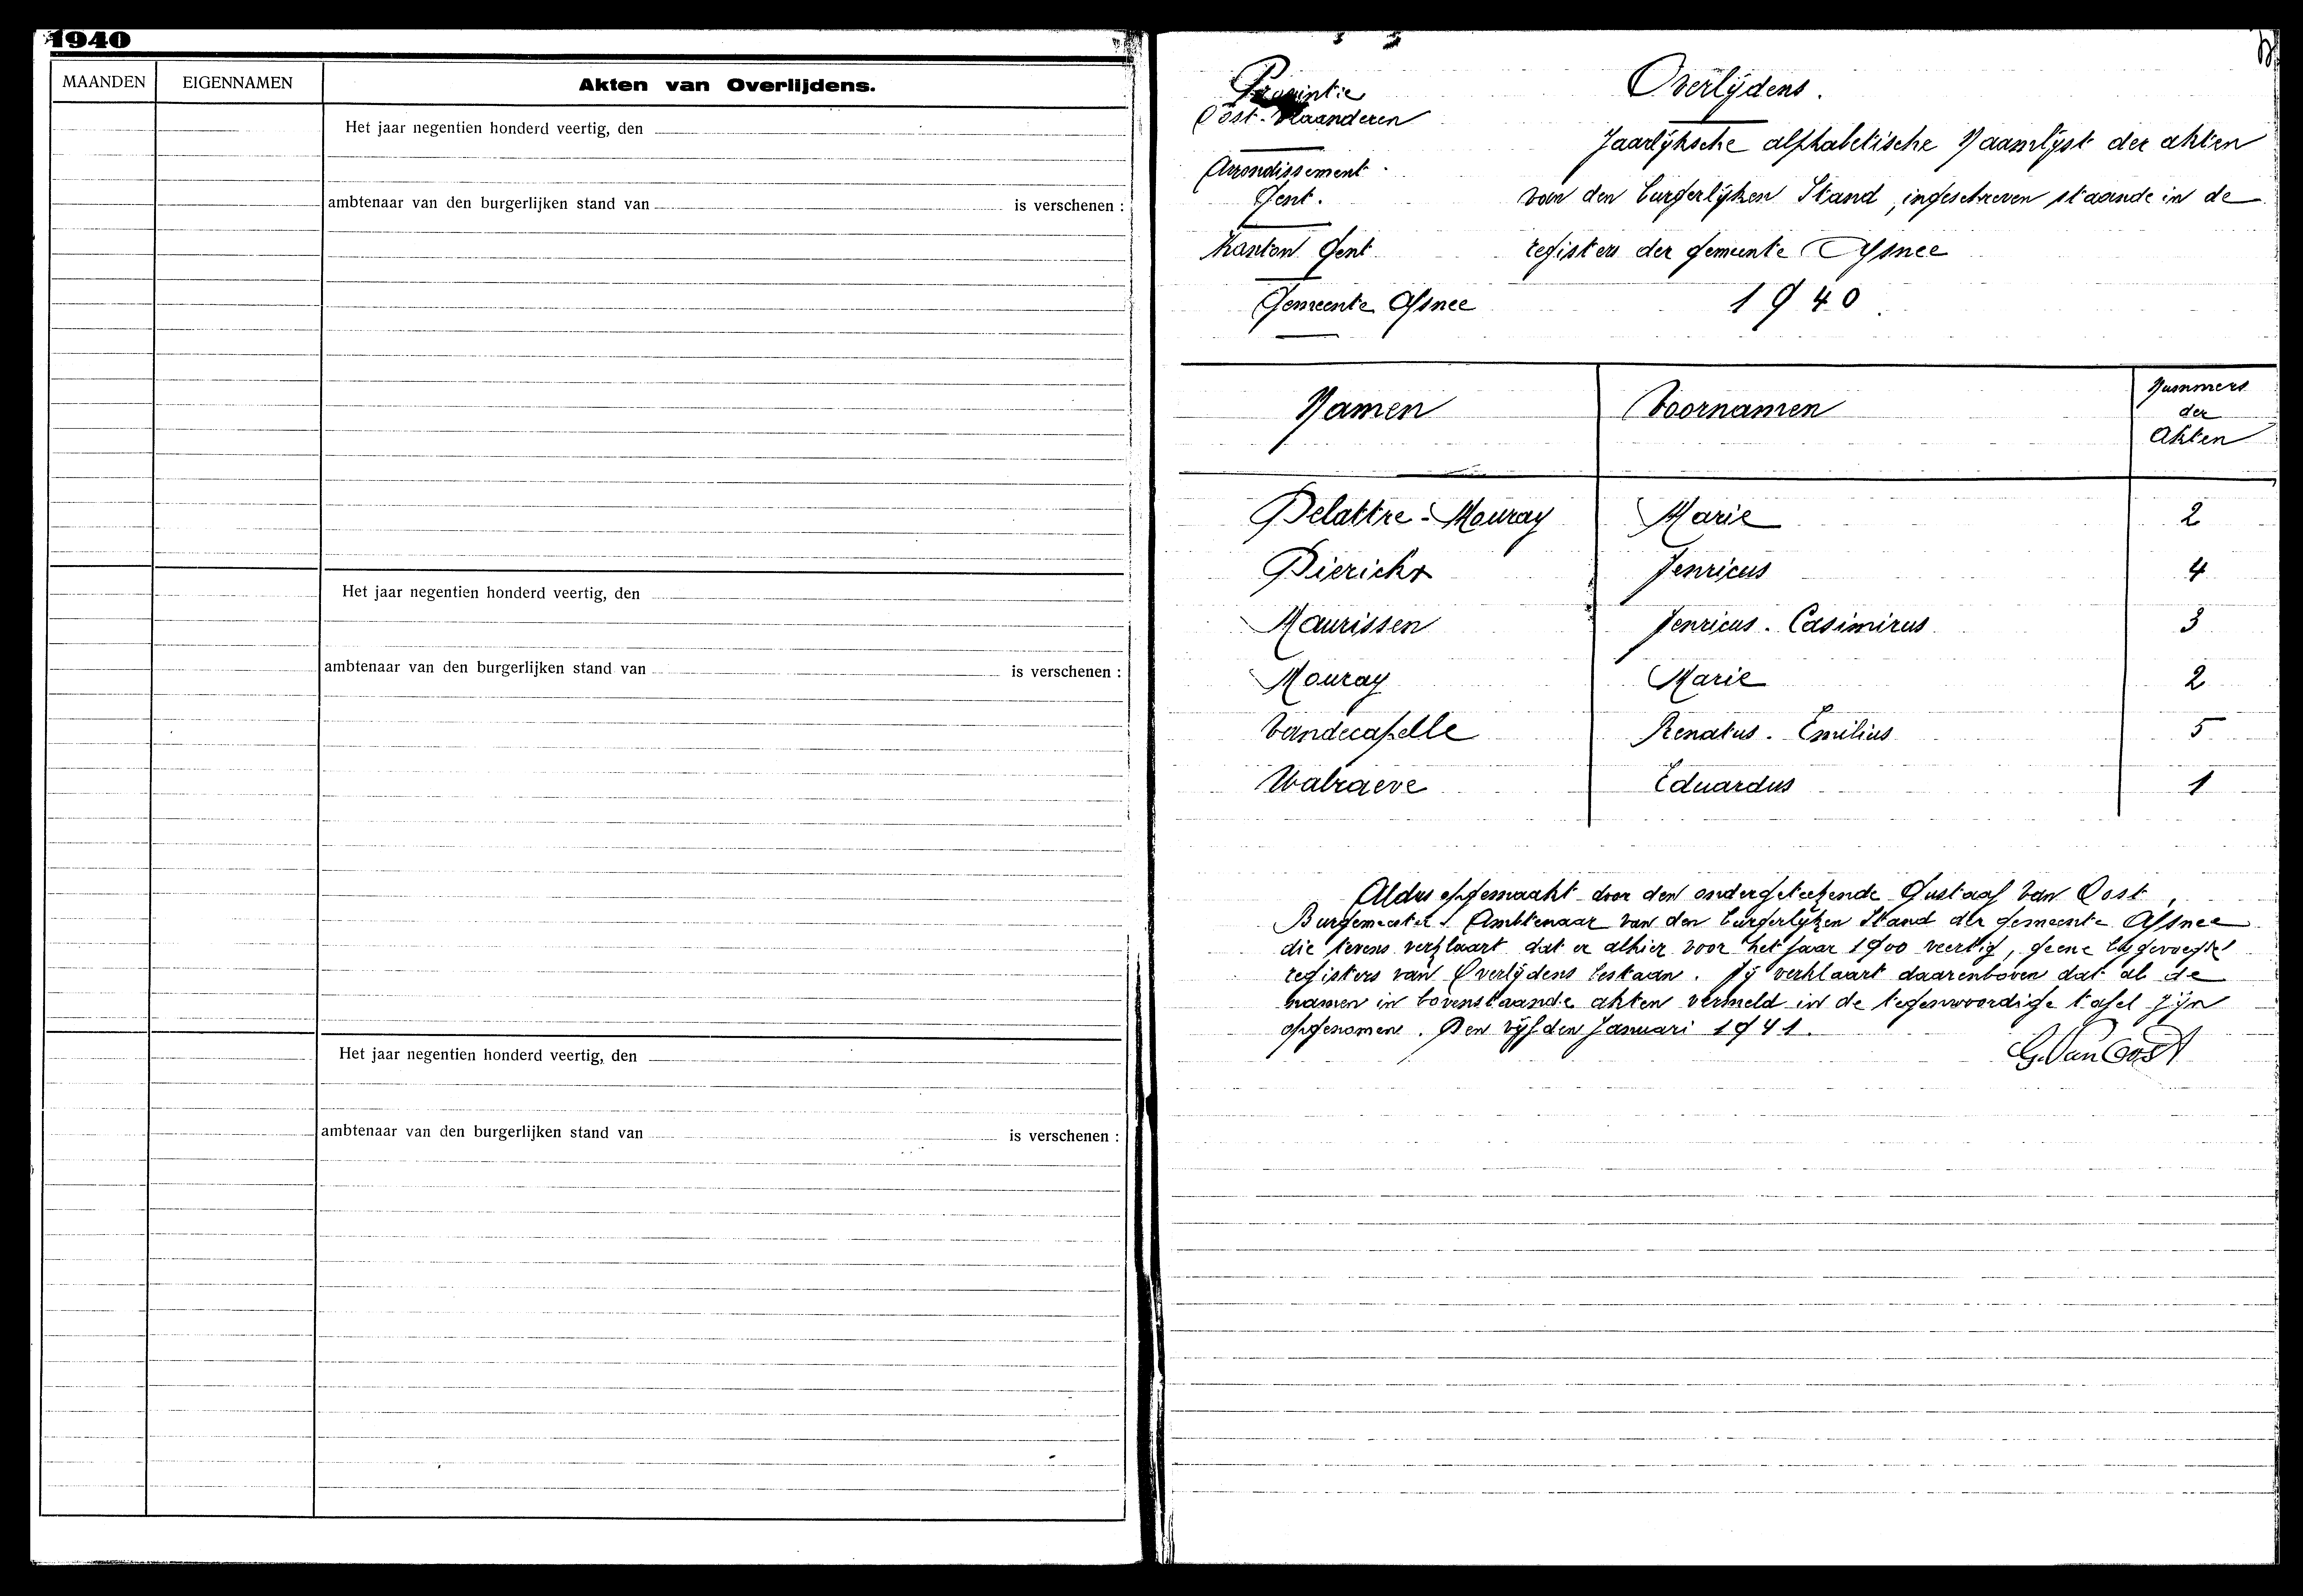 1940
MAANDEN EIGENNAMEN Akten van Overlijdens.
Het jaar negentien honderd veertig, den
ambtenaar van den burgerlijken stand van is verschenen :
Het jaar negentien honderd veertig, den
ambtenaar van den burgerlijken stand van is verschenen :
Het jaar negentien honderd veertig, den
ambtenaar van den burgerlijken stand van is verschenen :
Provintie
Oost-Vlaanderen
Arrondissement
Gent.
Kanton Gent
Gemeente Afsnee
Overlijdens.
Jaarlijksche alphabetische Naamlijst der akten
van den burgerlijken Stand, ingeschreven staande in de
registers der gemeente Afsnee
1940
Namen Voornamen Nummers
der
Akten
Delattre-Mouray Marie 2
Dierickx Henricus 4
Maurissen Henricus-Casimirus 3
Mouray Marie 2
Vandecapelle Renatus-Emilius 5
Walraeve Eduardus 1
Aldus opgemaakt door den ondergeteekende Gustaaf Van Oost,
Burgemeester Ambtenaar van den burgerlijken Stand der gemeente Afsnee
die tevens verklaart dat er alhier voor het jaar 1900 veertig, geene bijgevoegde
registers van Overlijdens bestaan. Hij verklaart daarenboven dat al de
namen in bovenstaande akten vermeld in de tegenwoordige tafel zijn
opgenomen. Den vijfden Januari 1941.
G. Van Oost